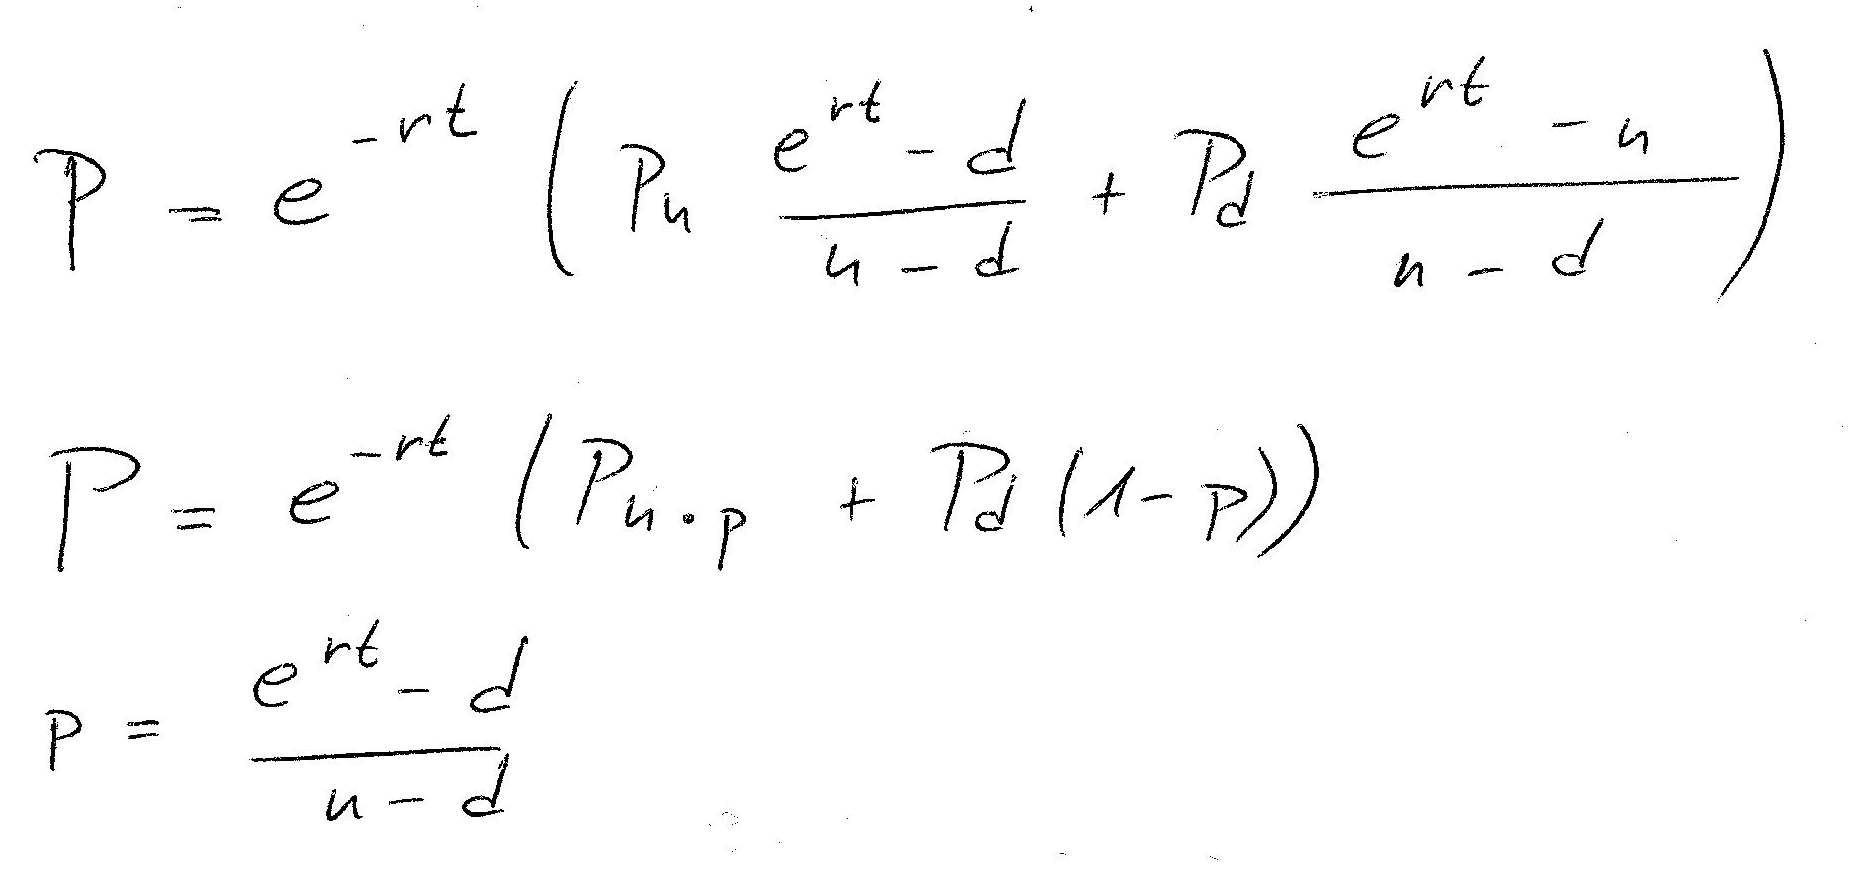 P = e^{-rt} ( P_u \frac{e^{rt} - d}{u - d} + P_d \frac{e^{rt} - u}{u - d} )
P = e^{-rt} ( P_u \cdot p + P_d (1 - p))
p = \frac{e^{rt} - d}{u - d}